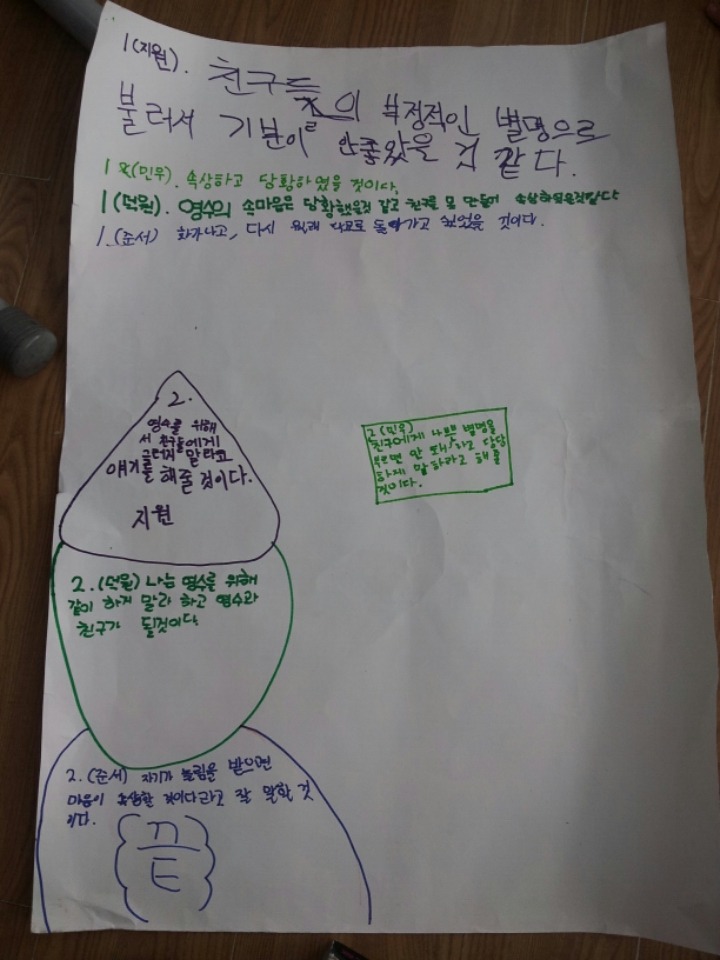 1(지원). 친구들의 부정적인 별명으로
불러서 기분이 안좋았을 것 같다.
1 (민우). 속상하고 당황하였을 것이다.
1(선원). 영수의 속마음은 당황했을것 같고 친구를 못 만들어 속상하였을것같다
1.(준서) 화가나고, 다시 원래 학교로 돌아가고 싶었을 것이다.
2.
영수를 위해
서 친구들에게
그러지 말라고
얘기를 해줄 것이다.
지원
2 (민우)
친구에게 나쁜 별명을
부르면 안 돼, 하고 당당
하게 말하라고 해줄
것이다.
2. (선원) 나는 영수를 위해
같이 하지 말라 하고 영수과
친구가 될것이다.
2. (준서) 자기가 놀림을 받으면
마음이 속상할 것이다라고 잘 말할 것
이다.
끝